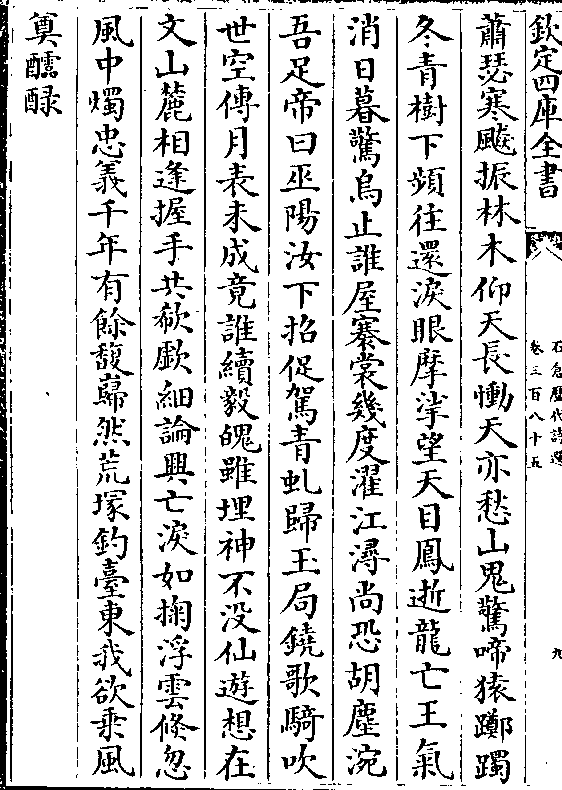 欽定四庫全書
石倉歷代詩選
卷三百八十五
九
蕭瑟寒飈振林木仰天長慟天亦愁山鬼驚啼猿躑躅
冬青樹下頻往還淚眼摩挲望天目鳳逝龍亡王氣
消日暮驚烏止誰屋褰裳幾度濯江潯尚恐胡塵涴
吾足帝曰巫陽汝下招促駕青虬歸玉局鐃歌騎吹
世空傳月表未成竟誰續毅魄雖埋神不没仙遊想在
文山麓相逢握手共欷歔細論興亡淚如掬浮雲倏忽
風中燭忠義千年有餘馥巋然荒塚釣臺東我欲乗風
奠醽醁